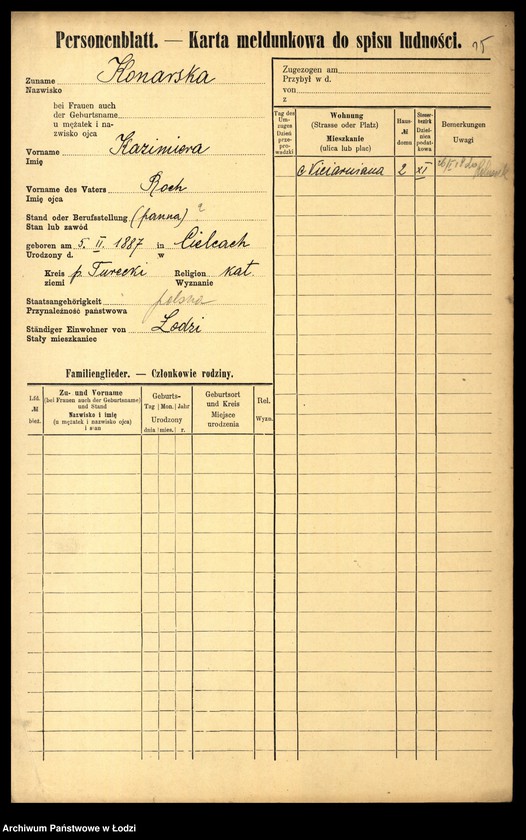 Personenblatt. — Karta meldunkowa do spisu ludności.
Zuname Konarska
Nazwisko
bei Frauen auch
der Geburtsname
u mężatek i na-
zwisko ojca
Vorname Kazimiera
Imię
Vorname des Vaters Roch
Imię ojca
Stand oder Berufsstellung (panna)
Stan lub zawód
geboren am 5. II. 1887 in Cielcach
Urodzony d. w
Kreis p. Turecki Religion kat.
ziemi Wyznanie
Staatsangehörigkeit polska
Przynależność państwowa
Ständiger Einwohner von Łodzi
Stały mieszkaniec
Familienglieder. — Członkowie rodziny.
Lfd. № bież.
Zu- und Vorname
(bei Frauen auch der Geburtsname)
und Stand
Nazwisko i imię
(u mężatek i nazwisko ojca)
i stan
Geburts-
Tag Mon. Jahr
Urodzony
dnia mies. r.
Geburtsort
und Kreis
Miejsce
urodzenia
Rel.
Wyzn.
Zugezogen am
Przybył w d.
von
z
Tag des
Um-
zuges
Dzień
prze-
prowadzki
Wohnung
(Strasse oder Platz)
Mieszkanie
(ulica lub plac)
Haus-
№
domu
Steuer-
bezirk
Dziel-
nica
podat-
kowa
Bemerkungen
Uwagi
2 XI
Archiwum Państwowe w Łodzi